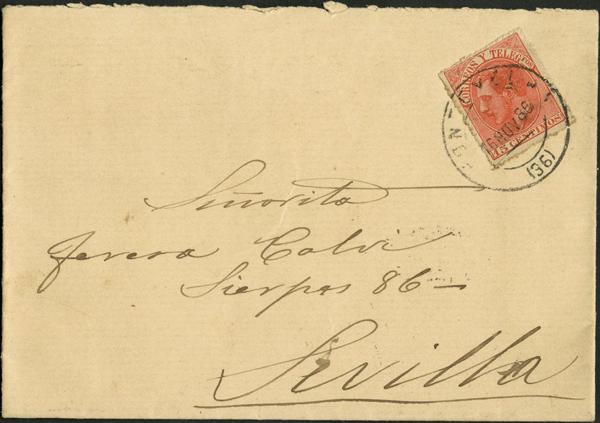 CORREOS Y TELEGFOS
15 CENTIMOS
16 NOV 86
(36)
Señorita
Teresa Calvi
Sierpes 86
Sevilla